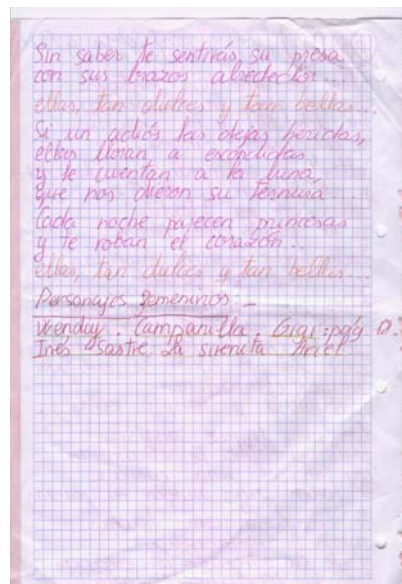 Sin saber te sentirás su presa
con sus brazos alrededor...
ellas, tan dulces y tan bellas...
Si un adiós las dejas heridas,
ellas lloran a escondidas
y le cuentan a la luna,
que nos dieron su ternura...
Cada noche parecen princesas
y te roban el corazón...
ellas, tan dulces y tan bellas...
Personajes femeninos -
Wenduy . Campanilla . Gigi :pág
Inés Sastre La sirenita Ariel